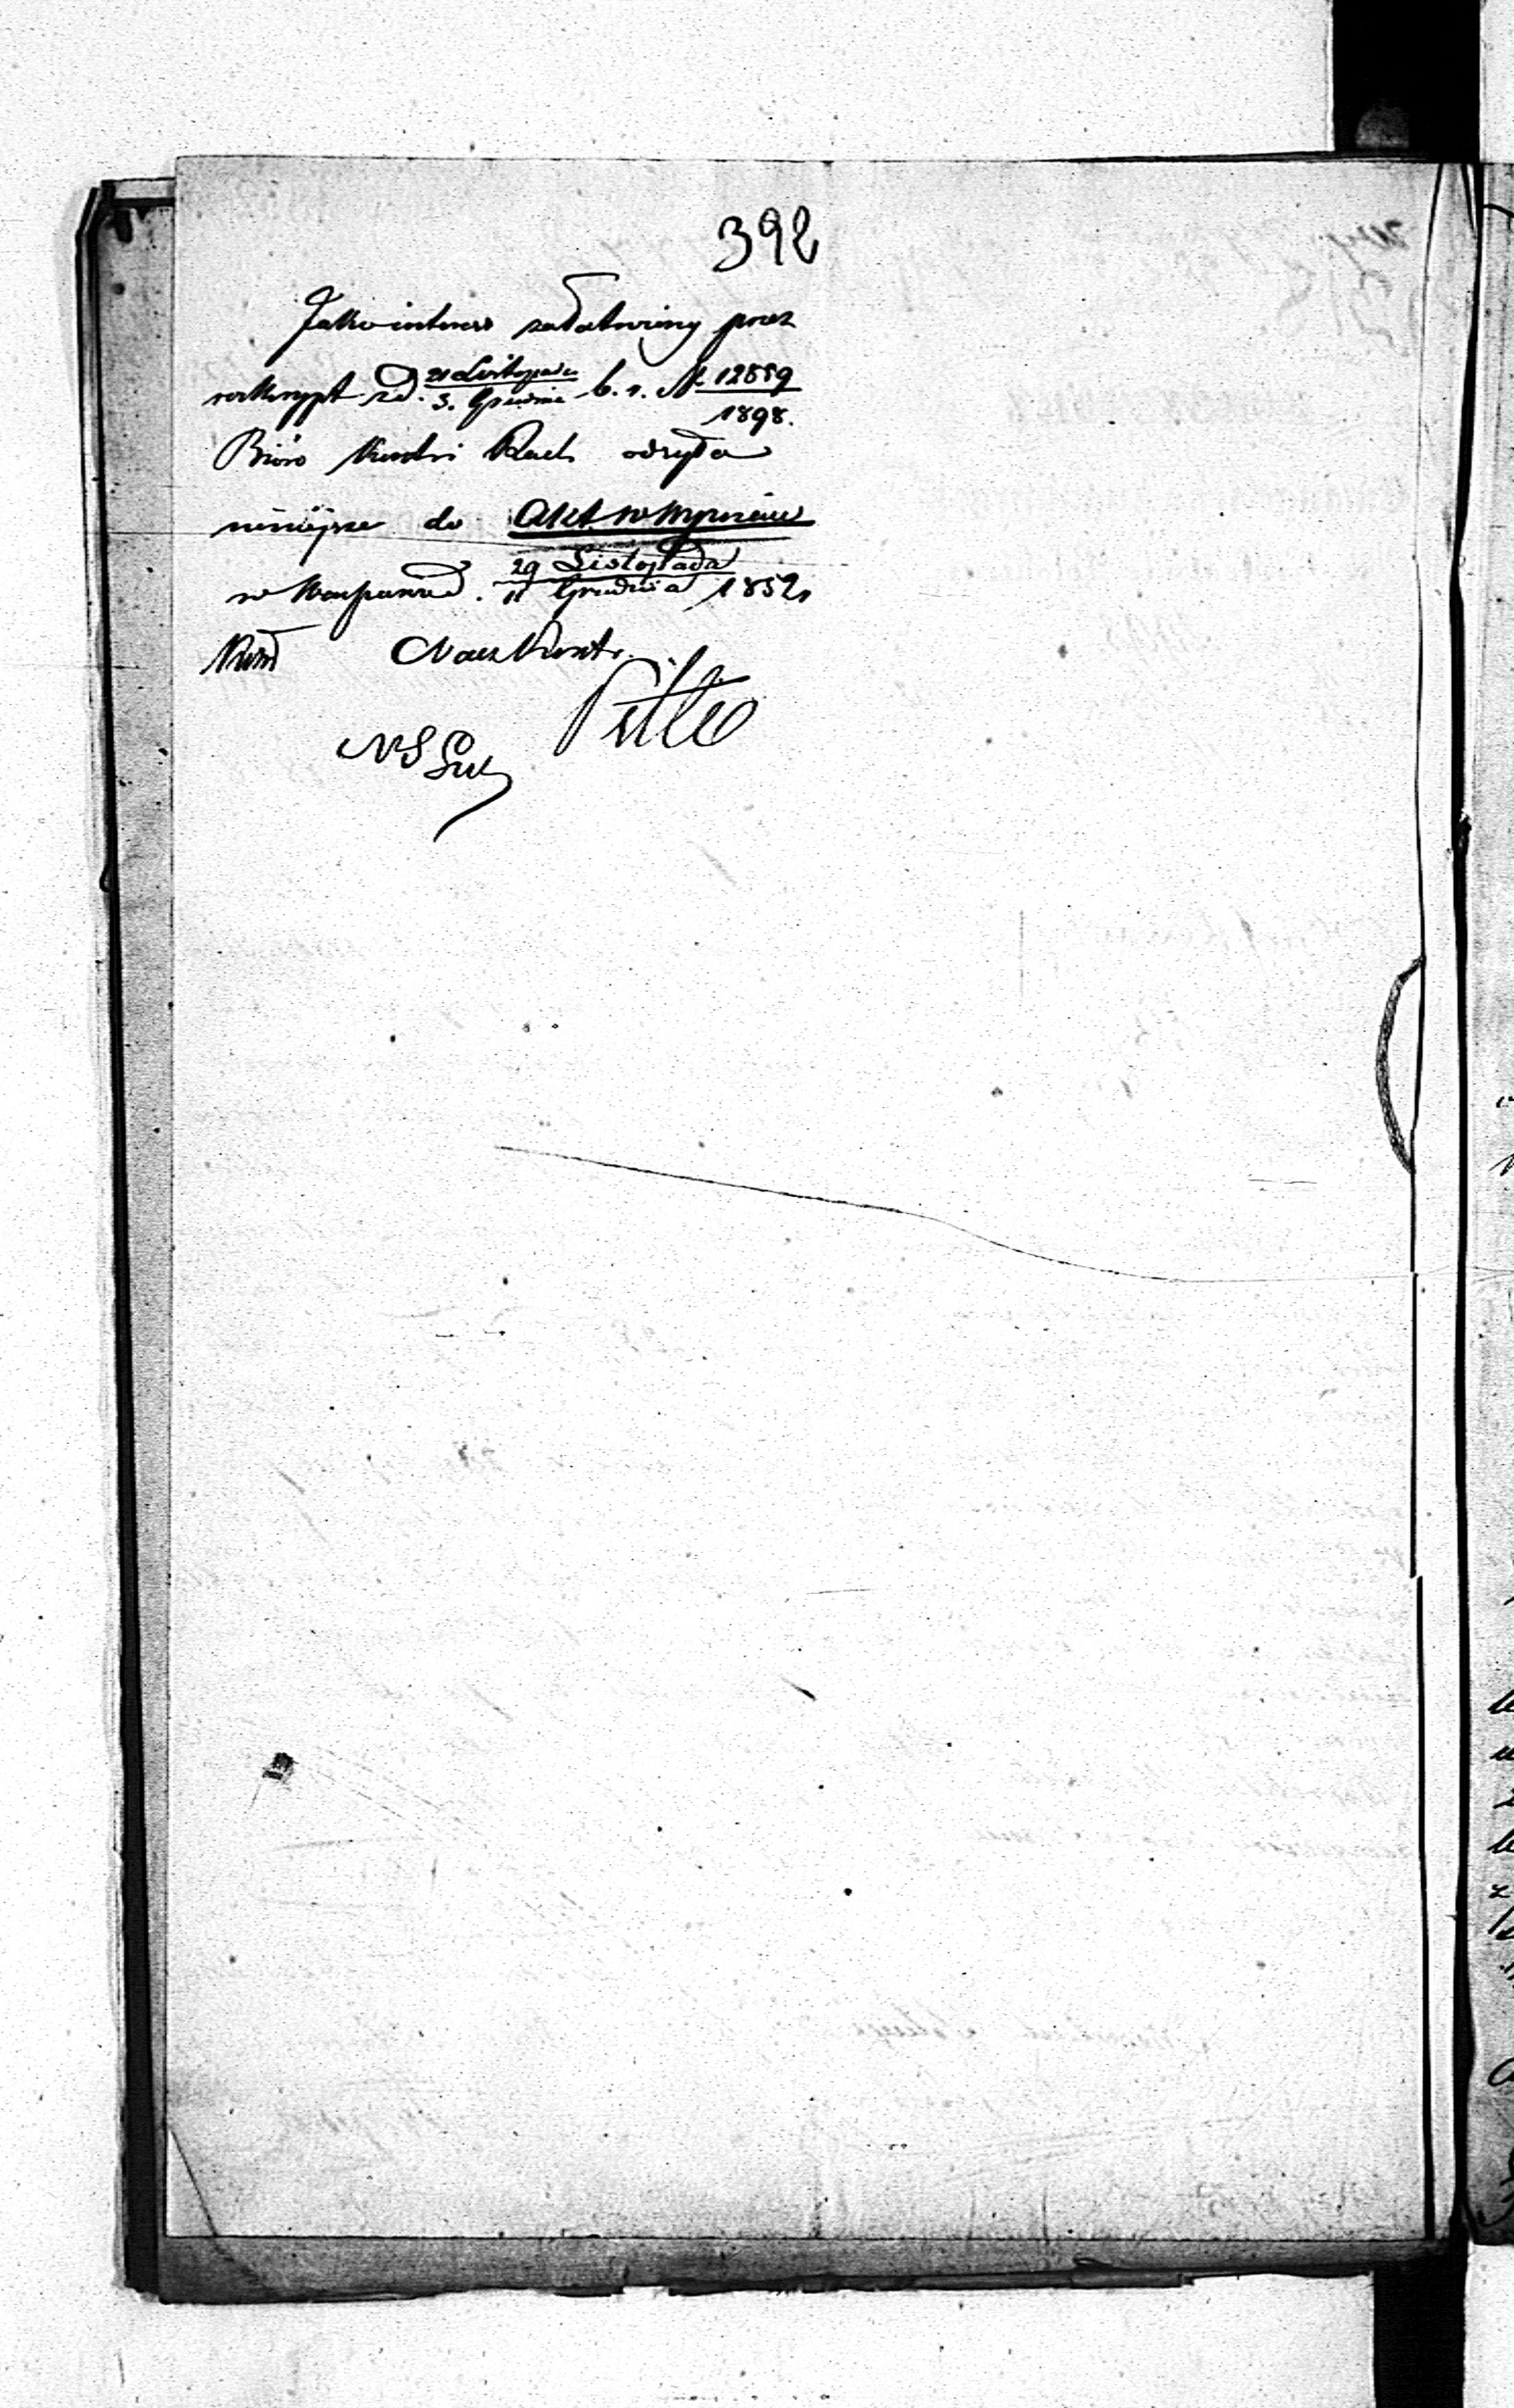 392
Jako interes załatwiony przez
reskrypt z d. 21 Listopada / 3. Grudnia b. r. № 12889 / 1898.
Biuro Kontroli Rach. odsyła
niniejsze do Akt
w Warszawie d. 29 Listopada / 11 Grudnia 1852
Nacz Kontr.